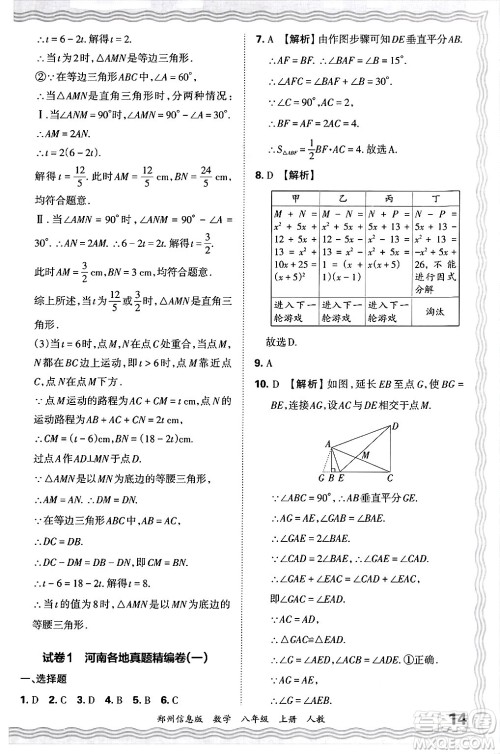 ∴t=6-2t.解得t=2.
∴当t=2时,△AMN是等边三角形.
②∵在等边三角形ABC中,∠A=60°,
∴当△AMN是直角三角形时,分两种情况:
Ⅰ.当∠ANM=90°时,∠AMN=30°.
∴AM=2AN.
∴t=2(6-2t).
解得t=12/5.此时AM=12/5,BN=24/5,
均符合题意.
Ⅱ.当∠AMN=90°时,∠ANM=30°.
∴AN=2AM.∴6-2t=2t.解得t=3/2.
此时AM=3/2,BN=3,均符合题意.
综上所述,当t为12/5或3/2时,△AMN是直角三
角形.
(3)当t=6时,M,N在点C处重合,当点M,
N都在BC边上运动,即t>6时,点M在点D
处,点N在点M下方.
∵点M的运动路程为AC+CD=t,点N的
运动路程为AB+BC+CN=2t,
∴CD=t-6,CN=2t-12,BN=(18-2t)cm.
过点A作AO⊥BC.
∵△AMN是以MN为底边的等腰三角形,
∴AM=AN.∴OM=ON.
∵CO=BO,
∴DC=DB.
∴DC-DM=DB-DM,即DC=BN.
∴t-6=18-2t.解得t=8.
∴当t的值为8时,△AMN是以MN为底边
的等腰三角形.
试卷1 河南各地真题精编卷(一)
一、选择题
1. D 2. D 3. B 4. B 5. C 6. C
7. A 【解析】由作图步骤可知DE垂直平分AB.
∴AF=BF.∴∠BAF=∠B=15°.
∴∠AFC=∠BAF+∠B=30°.
∵∠C=90°,∴AF=2AC=12.
∴BF=AF=2AC=12.
∴S△ABF=1/2BF·AC=36.故选A.
8. D 【解析】
甲 乙 丙 丁
M+N=x²+5x+12+5x+13=x²+10x+25=(x+5)²
M-N=x²+5x+12-5x-13=x²-1=(x+1)(x-1)
N-P=5x+13-x²-5x-13=-x²
N+P=5x+13+x²+5x+13=x²+10x+26,不能进行因式分解
进入下一轮游戏 进入下一轮游戏 进入下一轮游戏 淘汰
故选D.
9. A
10. D 【解析】如图,延长EB至点G,使BG=
BE,连接AG,设AM与DE相交于点M.
D
A
M
G B E C
∵∠ABC=90°,∴AB垂直平分GE.
∴AG=AE,∠GAB=∠BAE.
∴∠G=∠AEG.
∵AD=AE,
∴AG=AD.
∵∠AED=∠AEG,
∴∠G=∠AED.
∵AD=AE,
∴∠AED=∠ADE.
∴∠G=∠ADE.
郑州信息版 数学 八年级 上册 人教
14